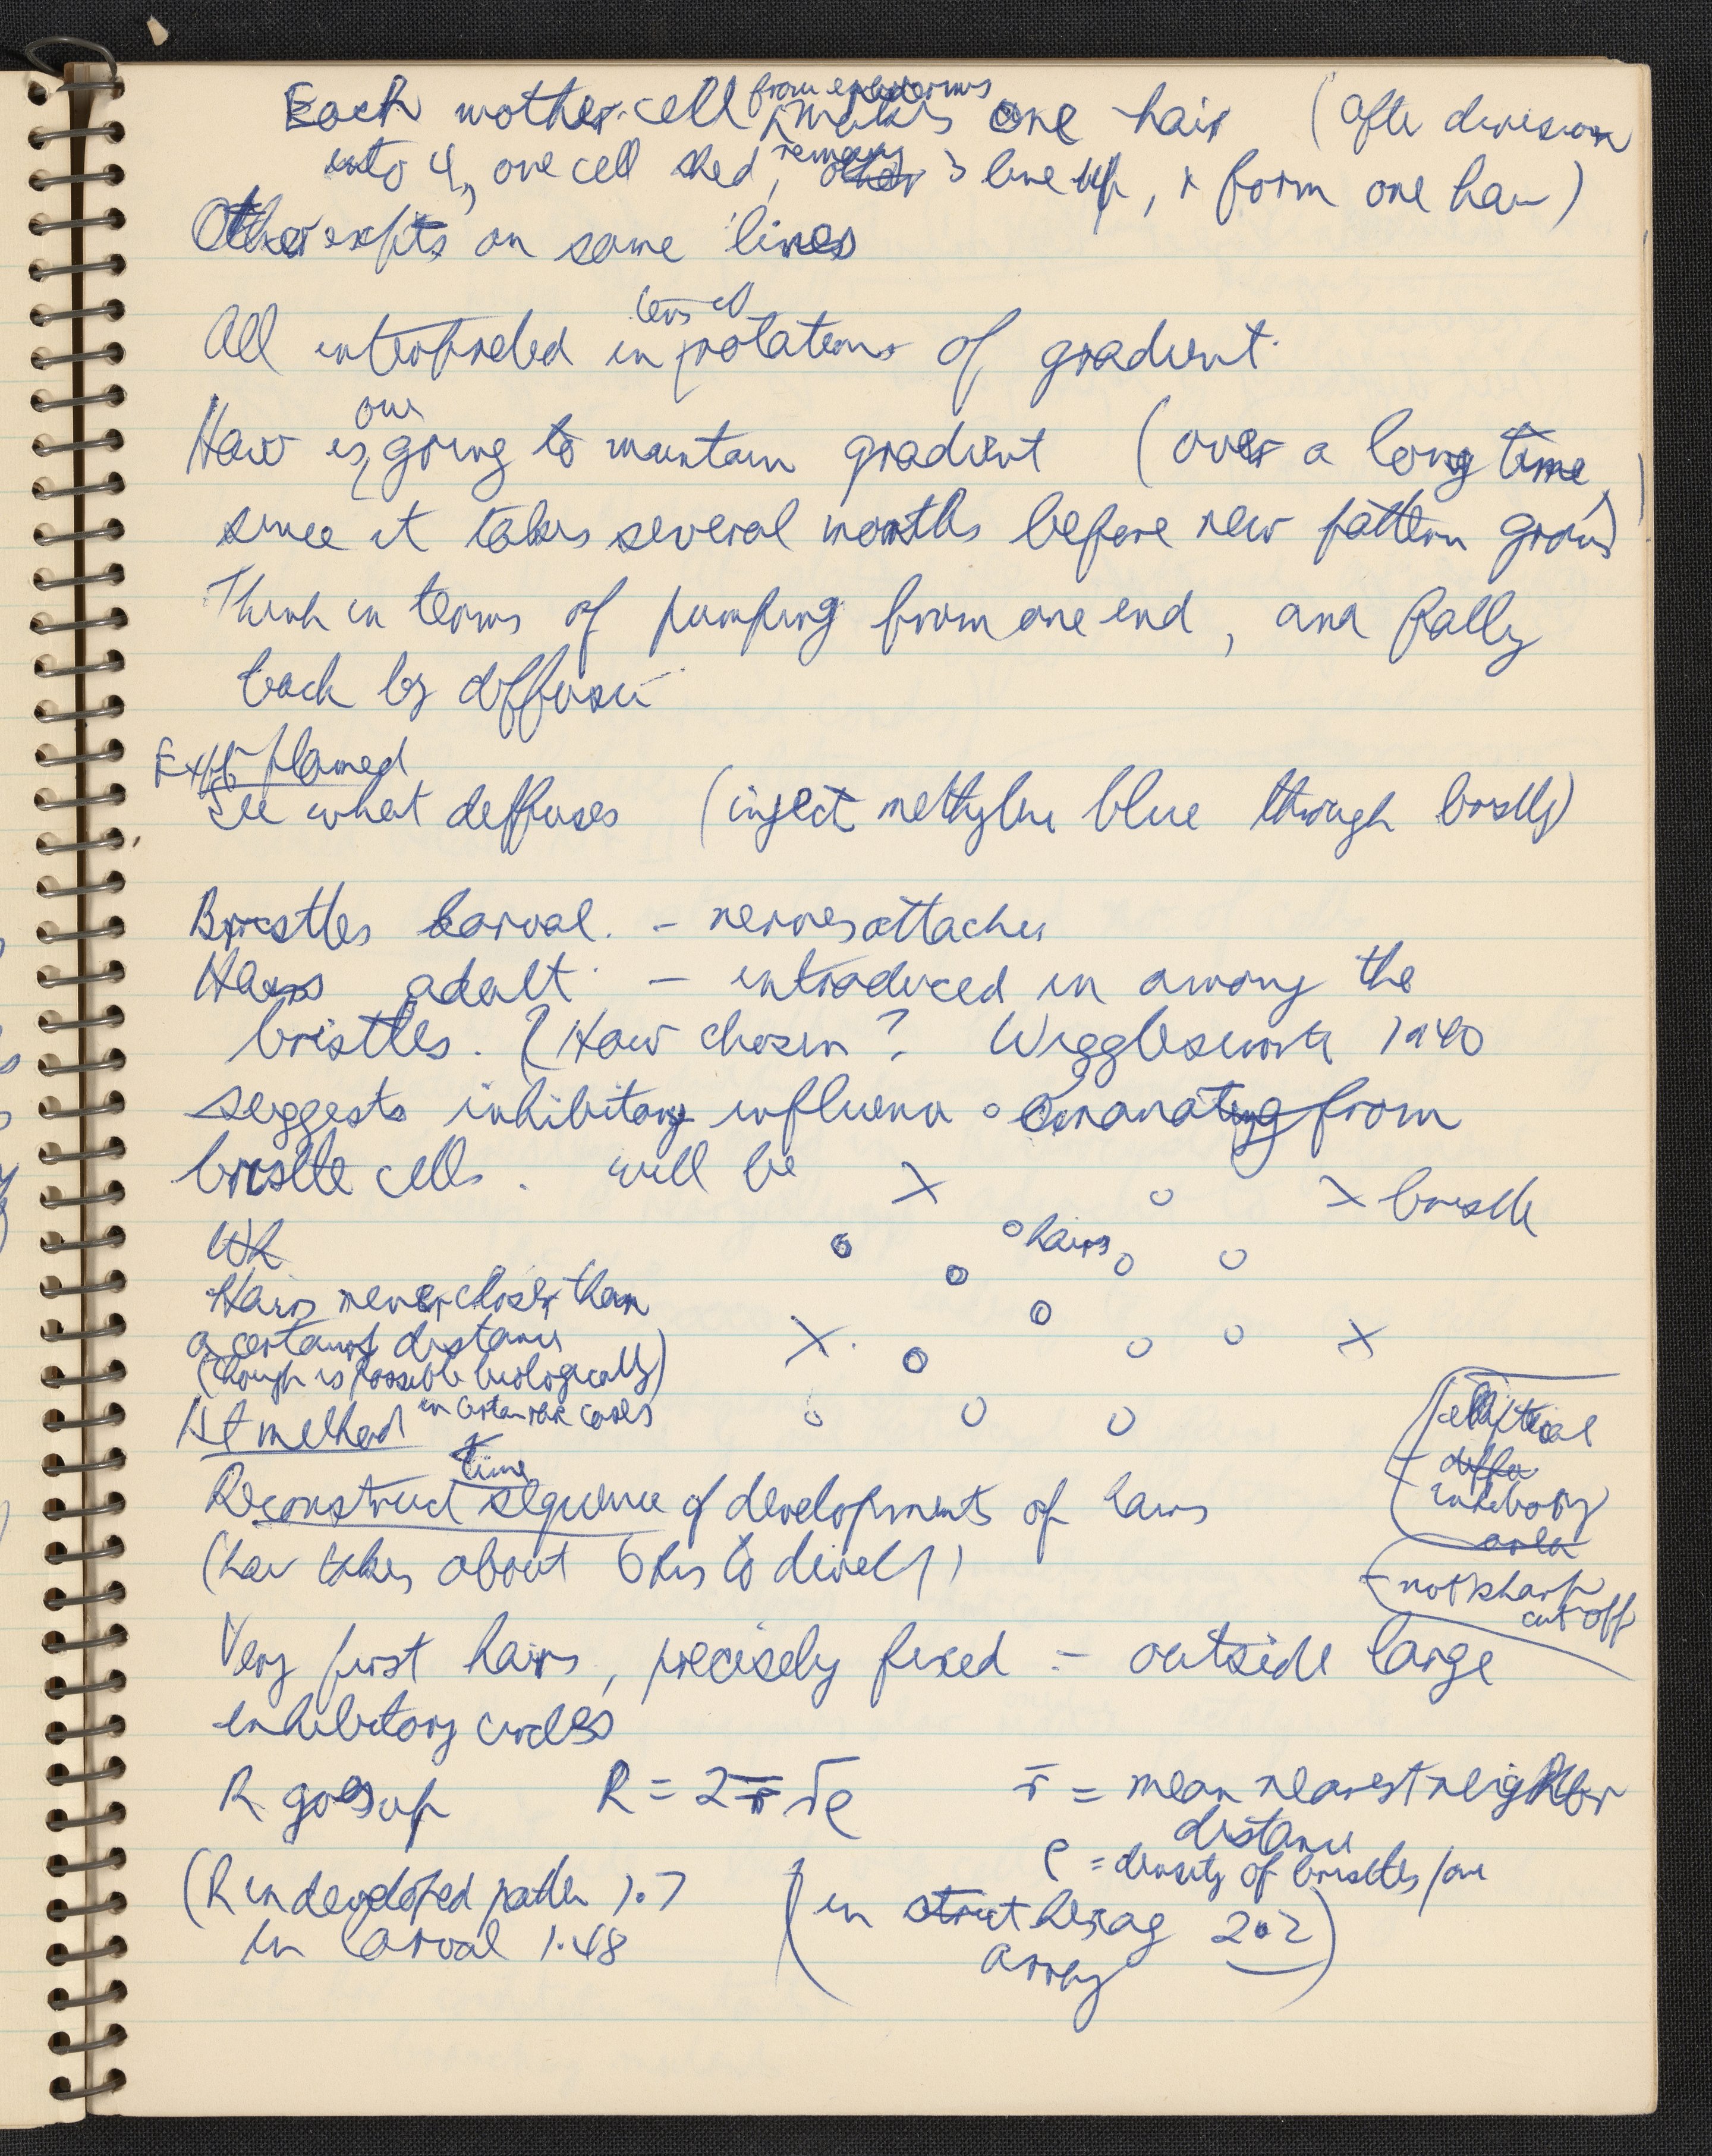 Each mother cell from epidermis makes one hair (after division
into 4, one cell shed, remaining other 3 line up, & form one hair)
Other expts on same lines
All interpreted in terms of rotations of gradient.
How is one going to maintain gradient (over a long time,
since it takes several months before new pattern grows)
Think in terms of pumping from one end, and
back by diffusion
Expt planned
See what diffuses (inject methylene blue through bristles)
Bristles larval. - nerves attached
Hairs adult. - introduced in among the
bristles. (How chosen? Wigglesworth 1940
suggests inhibitory influence emanating from
bristle cells. will be
X X bristle
Wh
hairs
Hairs never closer than
a certain distance
X X
(though is possible biologically)
in certain rare cases
1st method
elliptical
diffu
inhibitory
area
not sharp
cut off
Reconstruct time sequence of developments of hairs
(hair takes about 6 hrs to develop)
Very first hairs, precisely fixed - outside large
inhibitory circles
R goes up R = 2 r̄ √ρ r̄ = mean nearest neighbor
distance
ρ = density of bristles / unit
(R in developed patter 1.7 (in strict hexag 2.2)
in larval 1.48 array